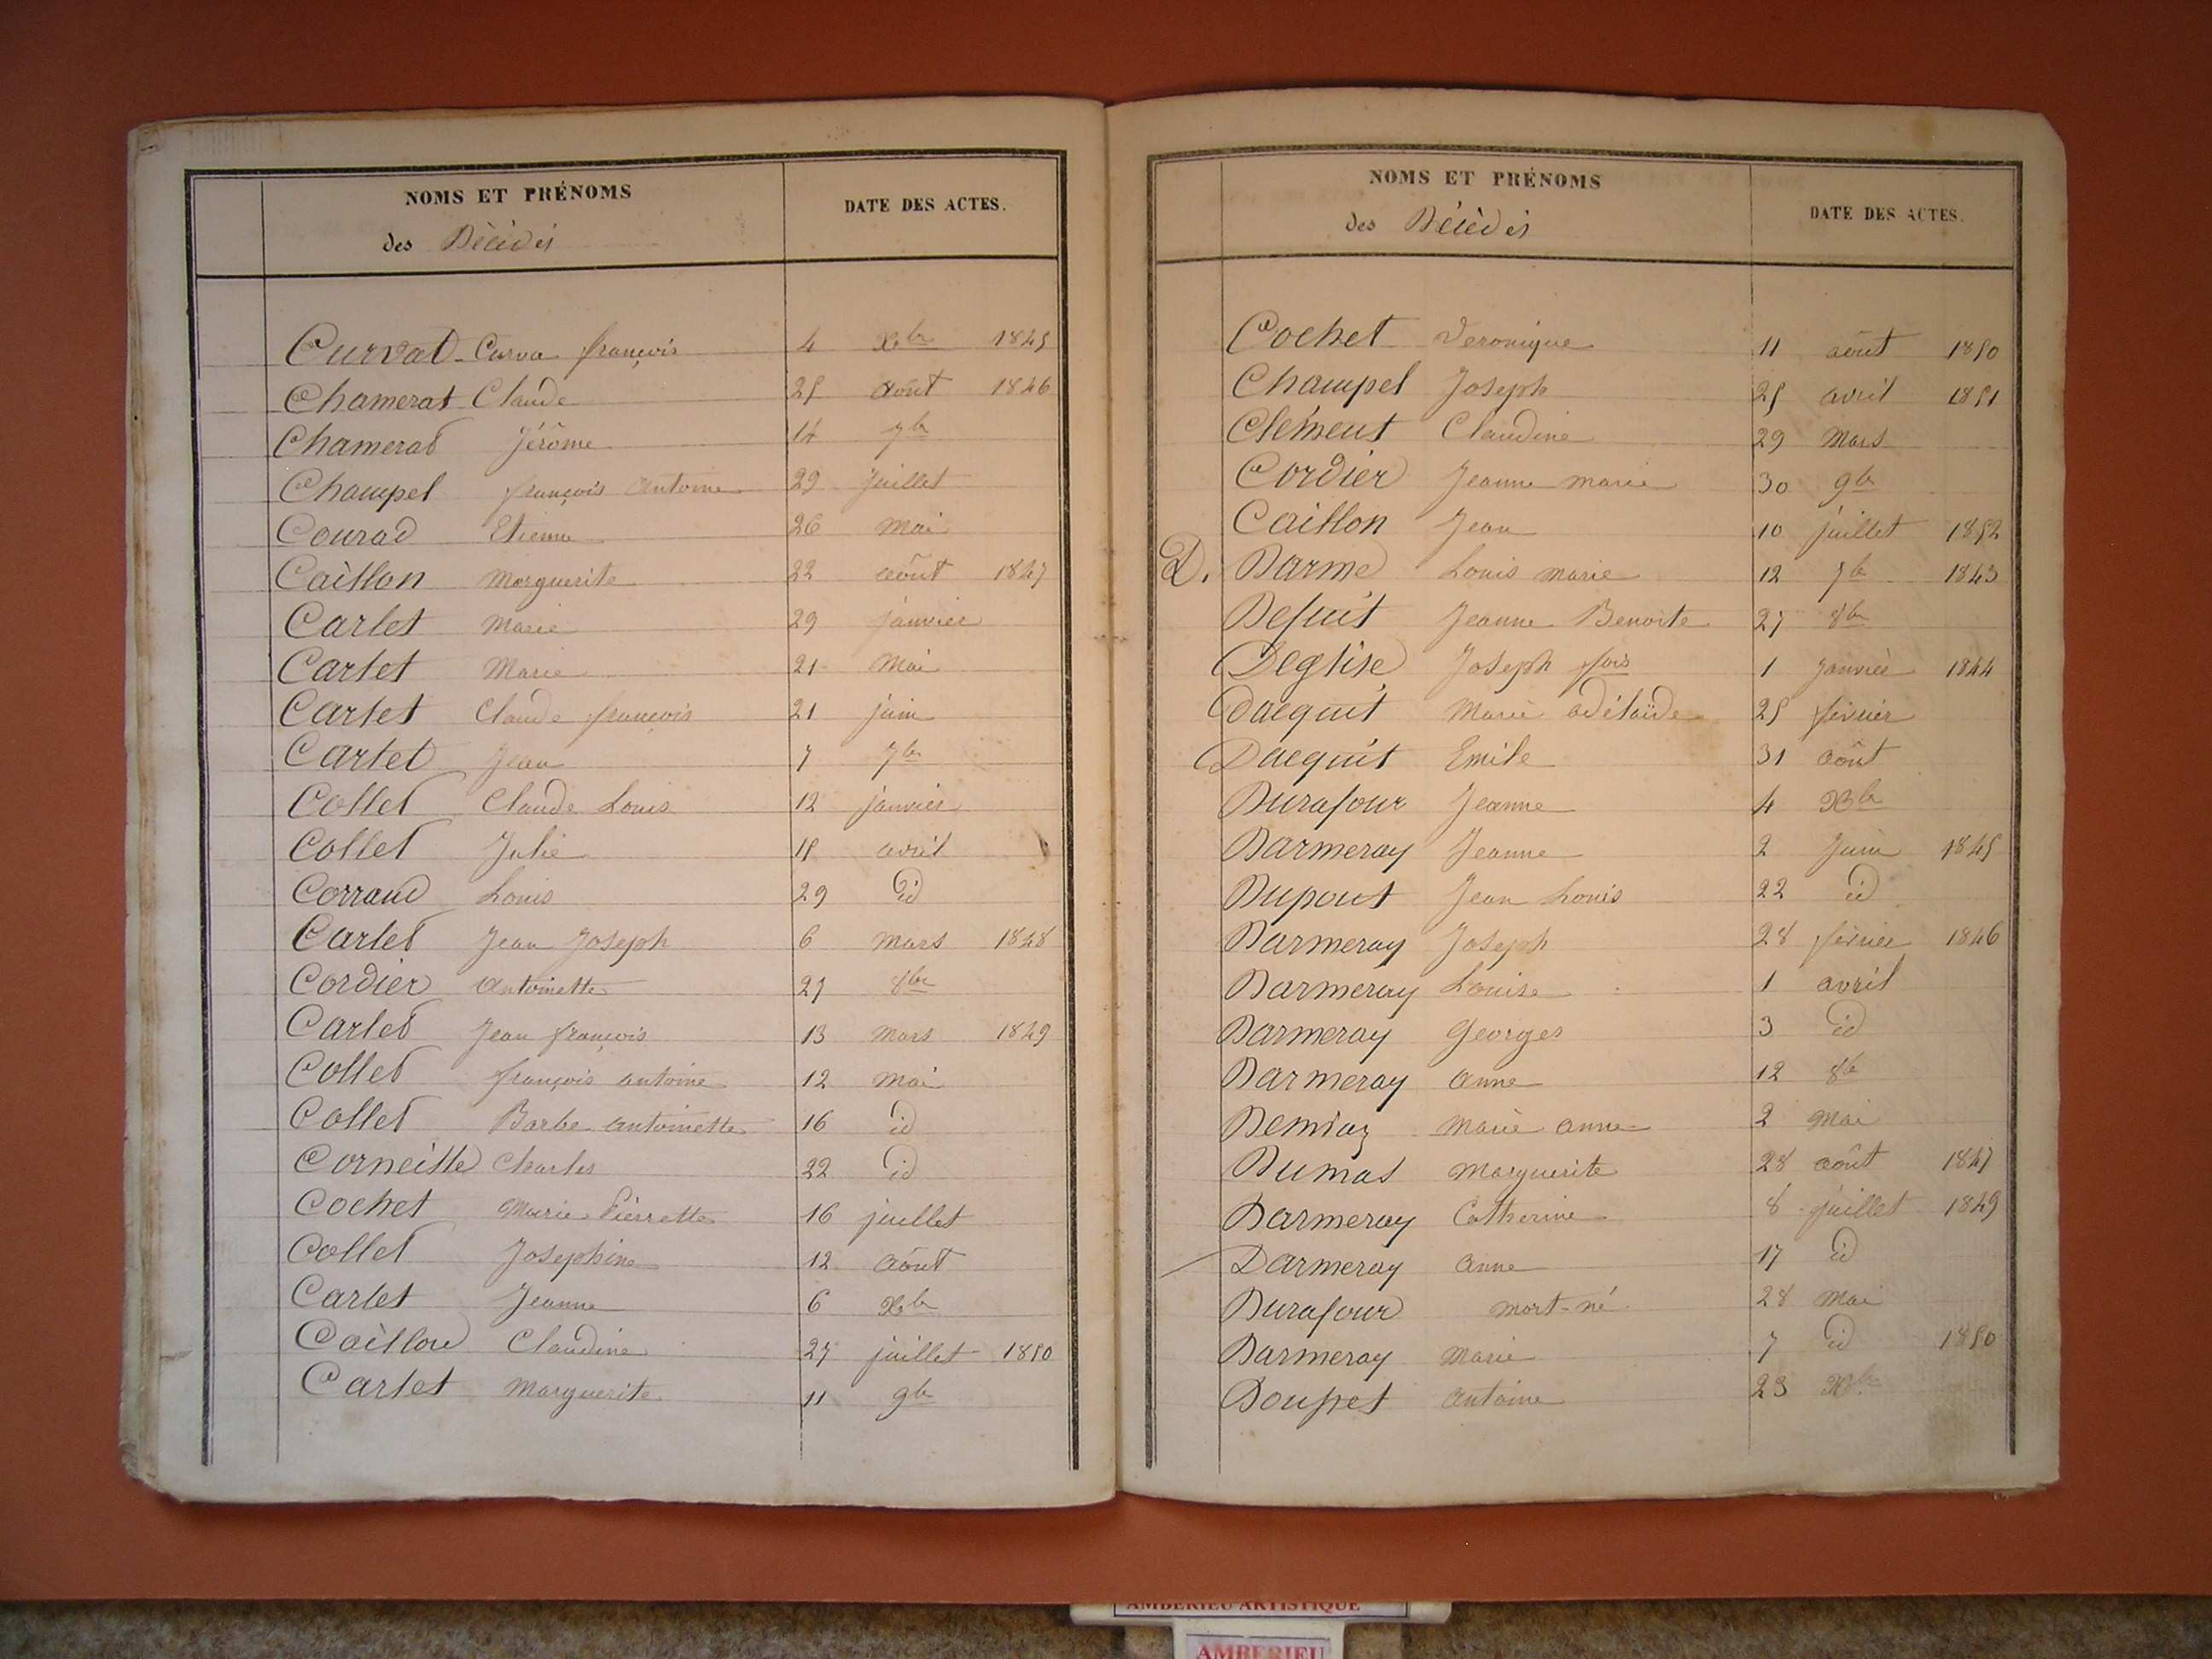 NOMS ET PRÉNOMS
des Décédés
DATE DES ACTES.
Curvat Curva françois 4 Xbr 1845
Chamerat Claude 25 août 1846
Chamerat Jérôme 14 7br
Champel françois antoine 29 juillet
Courad Etienne 26 mai
Caillon Marguerite 22 août 1847
Carlet Marie 29 janvier
Cartet Marie 21 Mai
Cartet Claude françois 21 juin
Cartet Jean 7 7br
Collet Claude Louis 12 janvier
Collet Julie 15 avril
Corraud Louis 29 id
Carlet Jean Joseph 6 mars 1848
Cordier antoinette 27 8br
Carlet Jean françois 13 mars 1849
Collet françois antoine 12 mai
Collet Barbe antoinette 16 id
Corneille Charles 22 id
Cochet Marie Pierrette 16 juillet
Collet Josephine 12 août
Carlet Jeanne 6 Xbr
Caillou Claudine 27 juillet 1850
Cartet Marguerite 11 9br
NOMS ET PRÉNOMS
des Décédés
DATE DES ACTES.
Cochet Veronique 11 août 1850
Champel Joseph 25 avril 1851
Clément Claudine 29 Mars
Cordier Jeanne marie 30 9br
Caillon Jean 10 juillet 1852
D. Darme Louis marie 12 7br 1843
Defuit Jeanne Benoite 27 8br
Deglise Joseph fois 1 Janvier 1844
Dacquit Marie adélaïde 25 février
Dacquit Emile 31 août
Durafour Jeanne 4 Xbr
Darmeray Jeanne 2 Juin 1845
Dupont Jean Louis 22 id
Darmeray Joseph 28 février 1846
Darmeray Louise 1 avril
Darmeray Georges 3 id
Darmeray anne 12 8br
Demiaz Marie anne 2 Mai
Dumas Marguerite 28 août 1847
Darmeray Catherine 8 juillet 1849
Darmeray anne 17 id
Durafour mort-né 28 mai
Darmeray Marie 7 id 1850
Doupet antoine 23 Xbr
AMBERIEU ARTISTIQUE
AMBERIEU